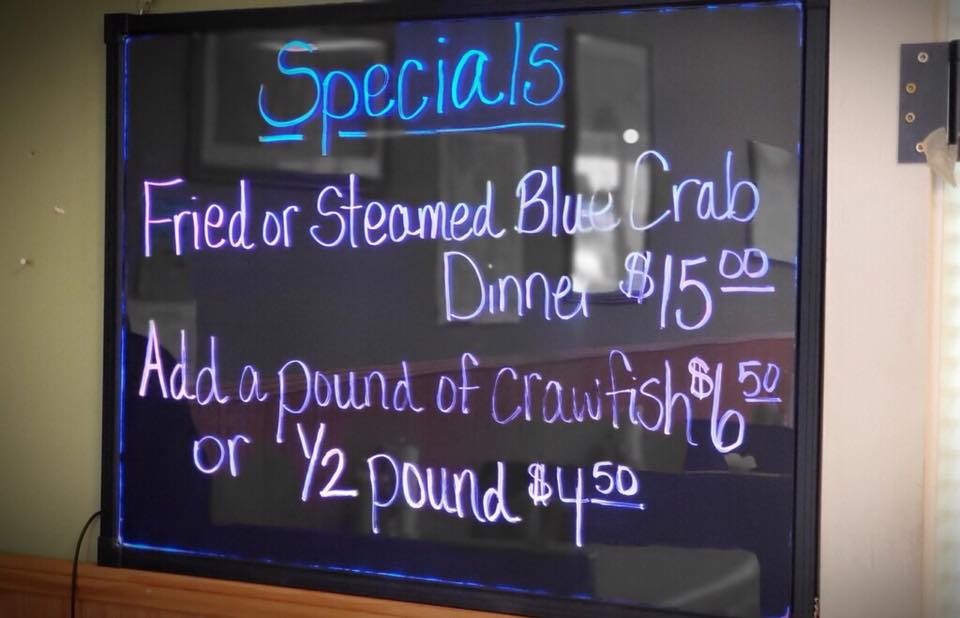 Specials
Fried or Steamed Blue Crab
Dinner $15 00
Add a pound of crawfish $6 50
or 1/2 pound $4 50